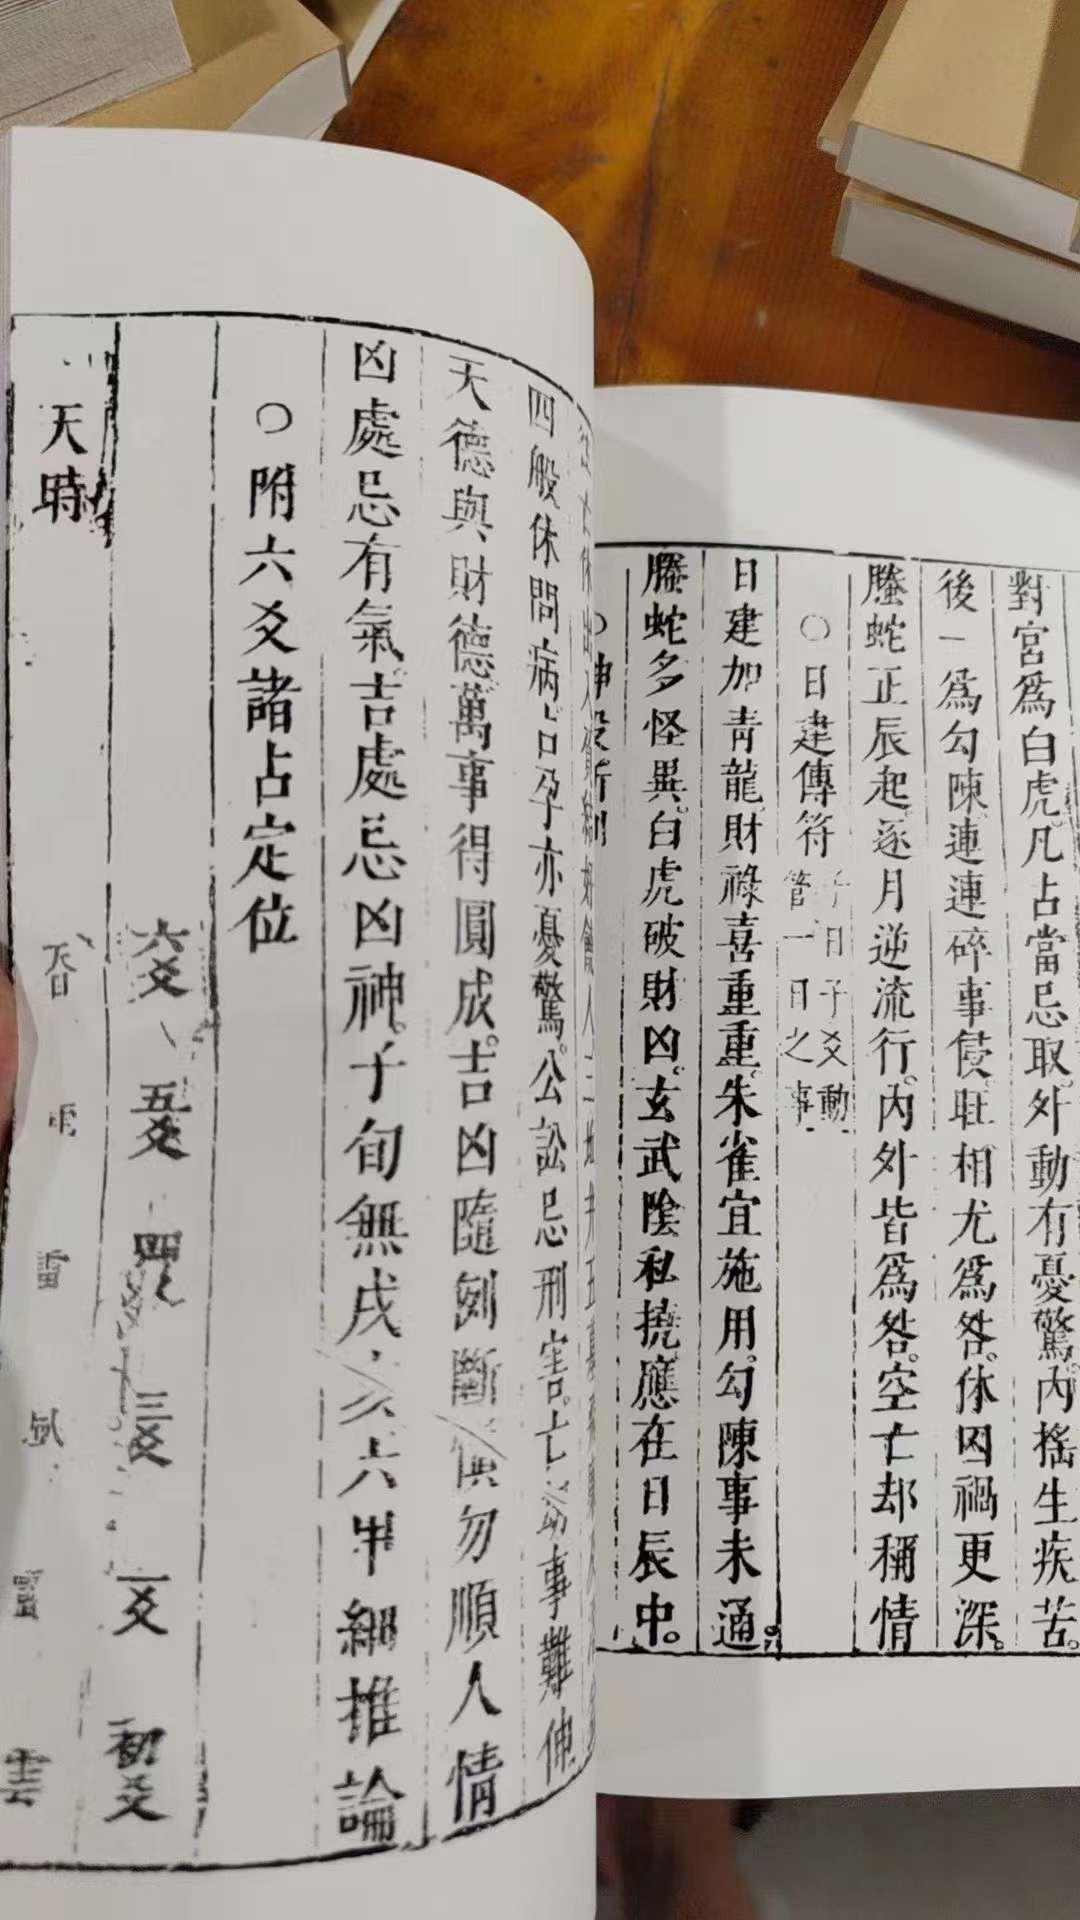 對宮爲白虎。凡占當忌取。外動有憂驚。內搖生疾苦。
後一爲勾陳。連連碎事侵。旺相尤爲咎。休囚禍更深。
螣蛇正辰起。逐月逆流行。內外皆爲咎。空亡却稱情
○日建傳符
子日子爻動
管一日之事
日建加青龍。財祿喜重重。朱雀宜施用。勾陳事未通。
螣蛇多怪異。白虎破財凶。玄武陰私撓。應在日辰中。
四般休問病。占孕亦憂驚。公訟忌刑害。亡
事難伸
天德與財德。萬事得圓成。吉凶隨例斷。慎勿順人情
凶處忌有氣。吉處忌凶神。子旬無戌亥。六甲細推論
○附六爻諸占定位
六爻 五爻 四爻 三爻 二爻 初爻
天時
雷
雲